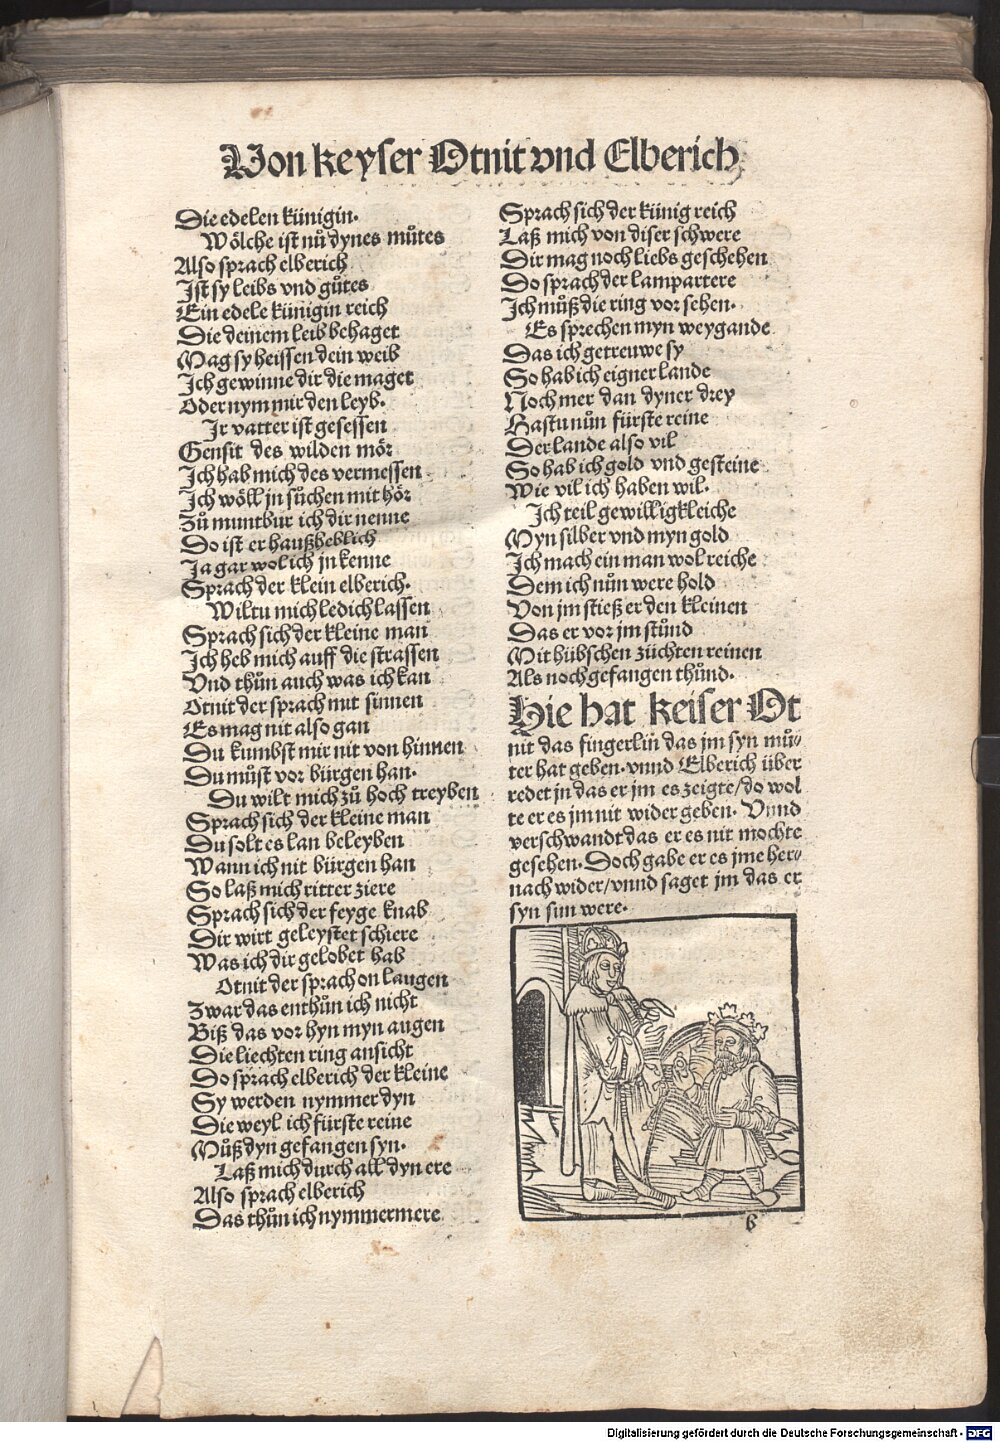 Von keyser Otnit vnd Elberich
Die edelen künigin.
Wölche ist nů dynes můtes
Also sprach elberich
Ist sy leibs vnd gůtes
Ein edele künigin reich
Die deinem leib behaget
Mag sy heissen dein weib
Ich gewinne dir die maget
Oder nym mir den leyb.
Ir vatter ist gesessen
Gensit des wilden mör
Ich hab mich des vermessen
Ich wöll jn sůchen mit hör
Zů muntbur ich dir nenne
Do ist er haußheblich
Ja gar wol ich jn kenne
Sprach der klein elberich.
Wiltu mich ledich lassen
Sprach sich der kleine man
Ich heb mich auff die strassen
Vnd thůn auch was ich kan
Otnit der sprach mit sinnen
Es mag nit also gan
Du kumbst mir nit von hinnen
Du můst vor bürgen han.
Du wilt mich zů hoch treyben
Sprach sich der kleine man
Du solt es lan beleyben
Wann ich nit bürgen han
So laß mich ritter ziere
Sprach sich der feyge knab
Dir wirt geleystet schiere
Was ich dir gelobet hab
Otnit der sprach on laugen
Zwar das enthůn ich nicht
Biß das vor hyn myn augen
Die liechten ring ansicht
Do sprach elberich der kleine
Sy werden nymmer dyn
Die weyl ich fürste reine
Můß dyn gefangen syn.
Laß mich durch all dyn ere
Also sprach elberich
Das thůn ich nymmermere
Sprach sich der künig reich
Laß mich von diser schwere
Dir mag noch liebs geschehen
Do sprach der lampartere
Ich můß die ring vor sehen.
Es sprechen myn weygande
Das ich getreuwe sy
So hab ich eigner lande
Noch mer dan dyner drey
Hastu nůn fürste reine
Der lande also vil
So hab ich gold vnd gesteine
Wie vil ich haben wil.
Ich teil gewilligkleiche
Myn silber vnd myn gold
Ich mach ein man wol reiche
Dem ich nůn were hold
Von jm stieß er den kleinen
Das er vor jm stůnd
Mit hübschen züchten reinen
Als noch gefangen thůnd.
Hie hat keiser Ot
nit das fingerlin das jm syn můt/
ter hat geben. vnnd Elberich über
redet jn das er jm es zeigte/ do wol
te er es jm nit wider geben. Vnnd
verschwandt das er es nit mochte
gesehen. Doch gabe er es jme her/
nach wider/ vnnd saget jm das er
syn sun were.
b
Digitalisierung gefördert durch die Deutsche Forschungsgemeinschaft - DFG